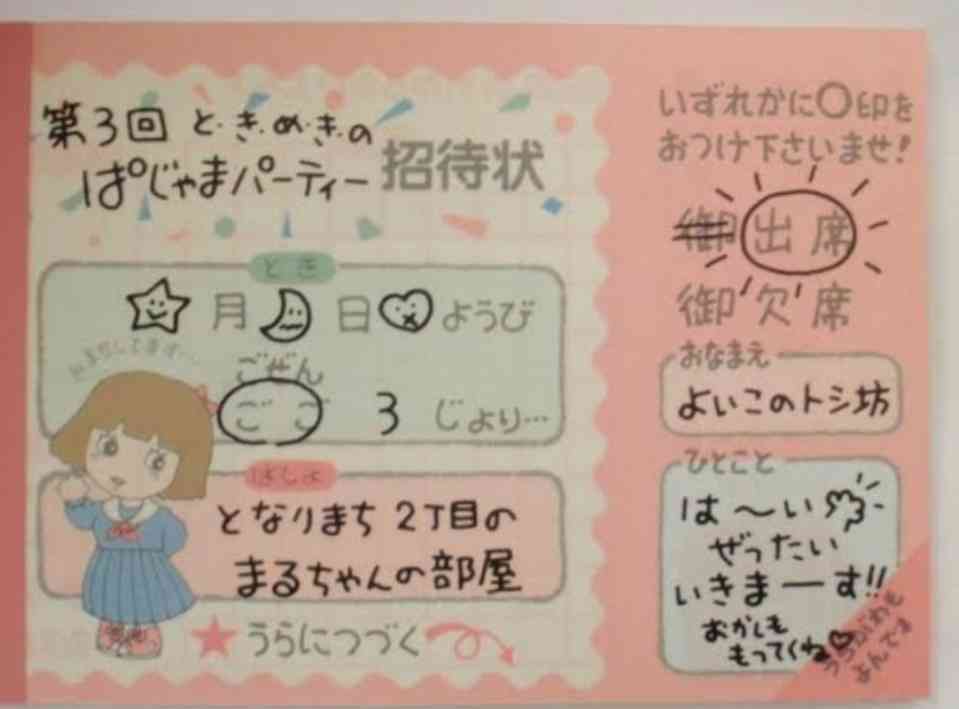 第3回 と・き・め・きの
ぱじゃまパーティー
招待状
とき
月 日 ようび
ごぜん
ごご 3 じより…
ばしょ
となりまち 2丁目の
まるちゃんの部屋
うらにつづく
いずれかに○印を
おつけ下さいませ!
御出席
御欠席
おなまえ
よいこのトシ坊
ひとこと
は〜い
ぜったい
いきまーす!!
おかしも
もってくね♡
よんでネ